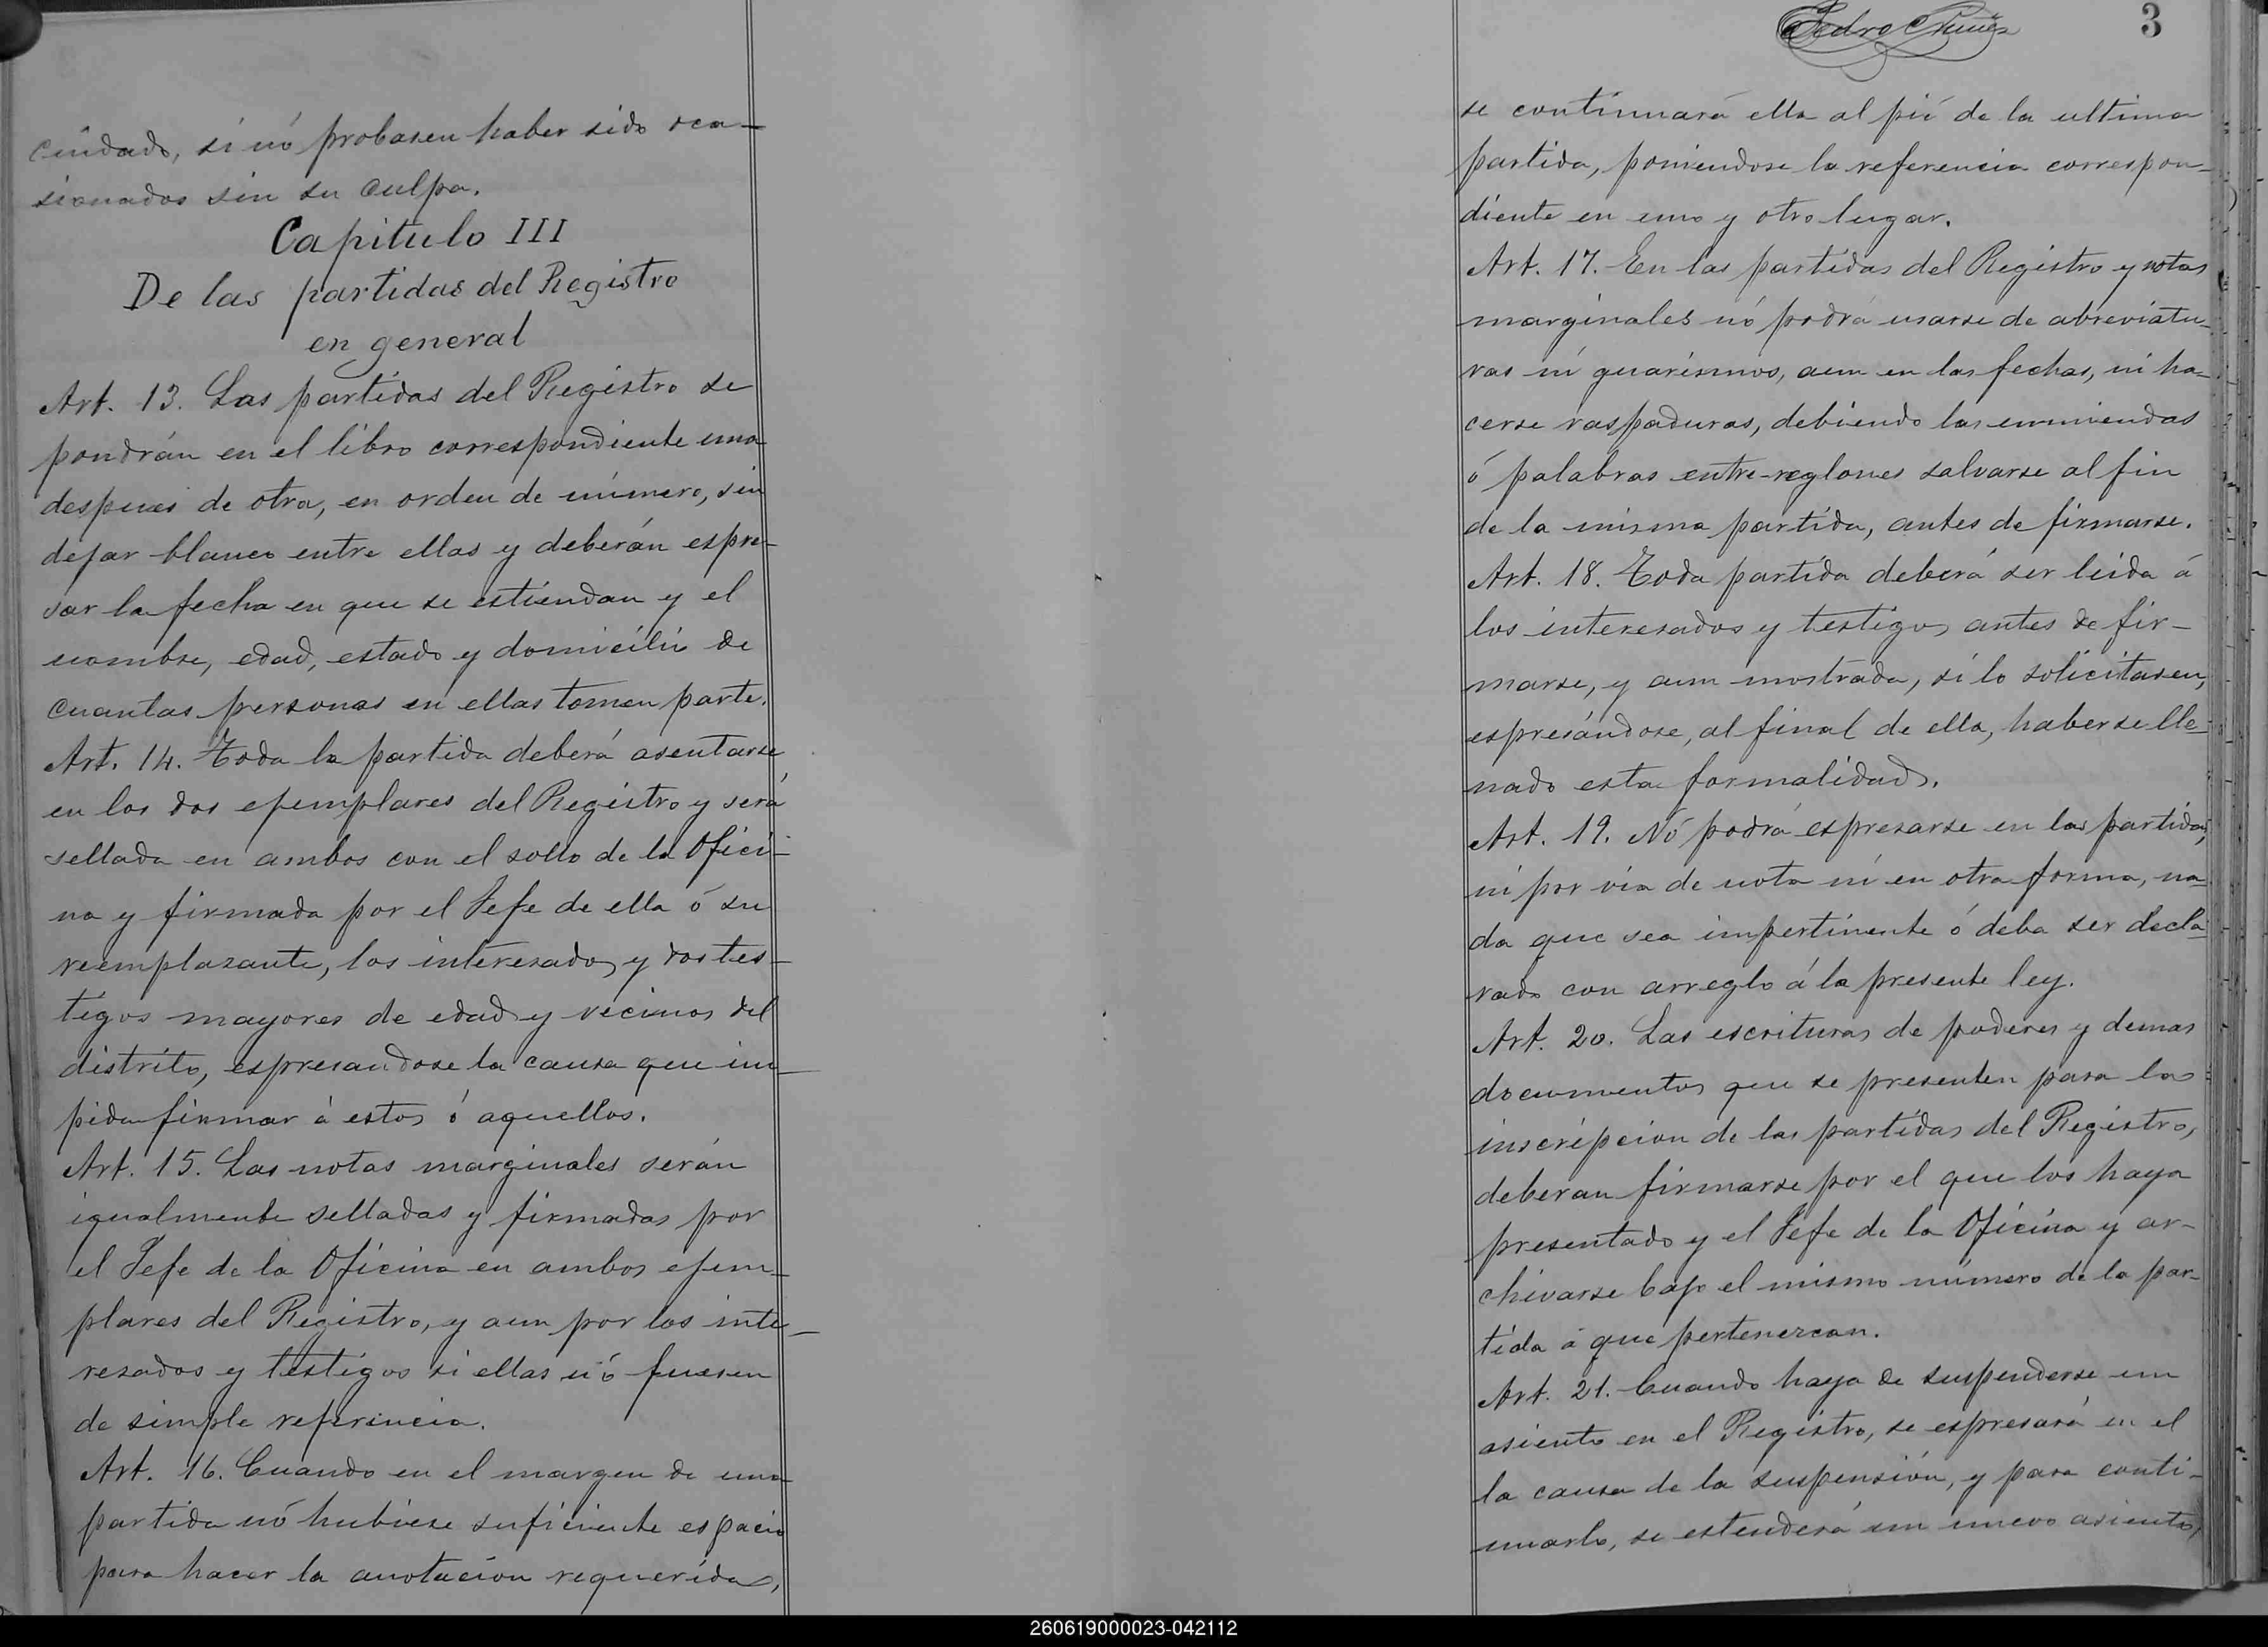 cuidado, si nó probasen haber sido oca-
sionados sin su culpa.
Capitulo III
De las partidas del Registro
en general
Art. 13. Las partidas del Registro se
pondrán en el libro correspondiente una
despues de otra, en orden de número, sin
dejar blanco entre ellas y deberán espre-
sar la fecha en que se estiendan y el
nombre, edad, estado y domicilio de
cuantas personas en ellas tomen parte.
Art. 14. Toda la partida deberá asentarse
en los dos ejemplares del Registro y será
sellada en ambos con el sello de la Ofici-
na y firmada por el Jefe de ella ó su
reemplazante, los interesados y dos tes-
tigos mayores de edad y vecinos del
distrito, espresandose la causa que im-
pida firmar á estos ó aquellos.
Art. 15. Las notas marginales serán
igualmente selladas y firmadas por
el Jefe de la Oficina en ambos ejem-
plares del Registro, y aun por los inte-
resados y testigos si ellas nó fuesen
de simple referencia.
Art. 16. Cuando en el margen de una
partida nó hubiese suficiente espacio
para hacer la anotación requerida,
Pedro Nuñez
3
se continuará ella al pié de la ultima
partida, poniendose la referencia correspon-
diente en uno y otro lugar.
Art. 17. En las partidas del Registro y notas
marginales nó podrá usarse de abreviatu-
ras ni guarismos, aun en las fechas, ni ha-
cerse raspaduras, debiendo las enmiendas
ó palabras entre-reglones salvarse al fin
de la misma partida, antes de firmarse.
Art. 18. Toda partida deberá ser leida á
los interesados y testigos antes de fir-
marse, y aun mostrada, si lo solicitasen,
espresándose, al final de ella, haberse lle-
nado esta formalidad.
Art. 19. Nó podrá espresarse en las partidas,
ni por via de nota ni en otra forma, na-
da que sea impertinente ó deba ser decla-
rado con arreglo á la presente ley.
Art. 20. Las escrituras de poderes y demas
documentos que se presenten para las
inscripcion de las partidas del Registro,
deberan firmarse por el que los haya
presentado y el Jefe de la Oficina y ar-
chivarse bajo el mismo número de la par-
tida á que pertenezcan.
Art. 21. Cuando haya de suspenderse un
asiento en el Registro, se espresará en el
la causa de la suspensión, y para conti-
nuarlo, se estenderá un nuevo asiento,
260619000023-042112